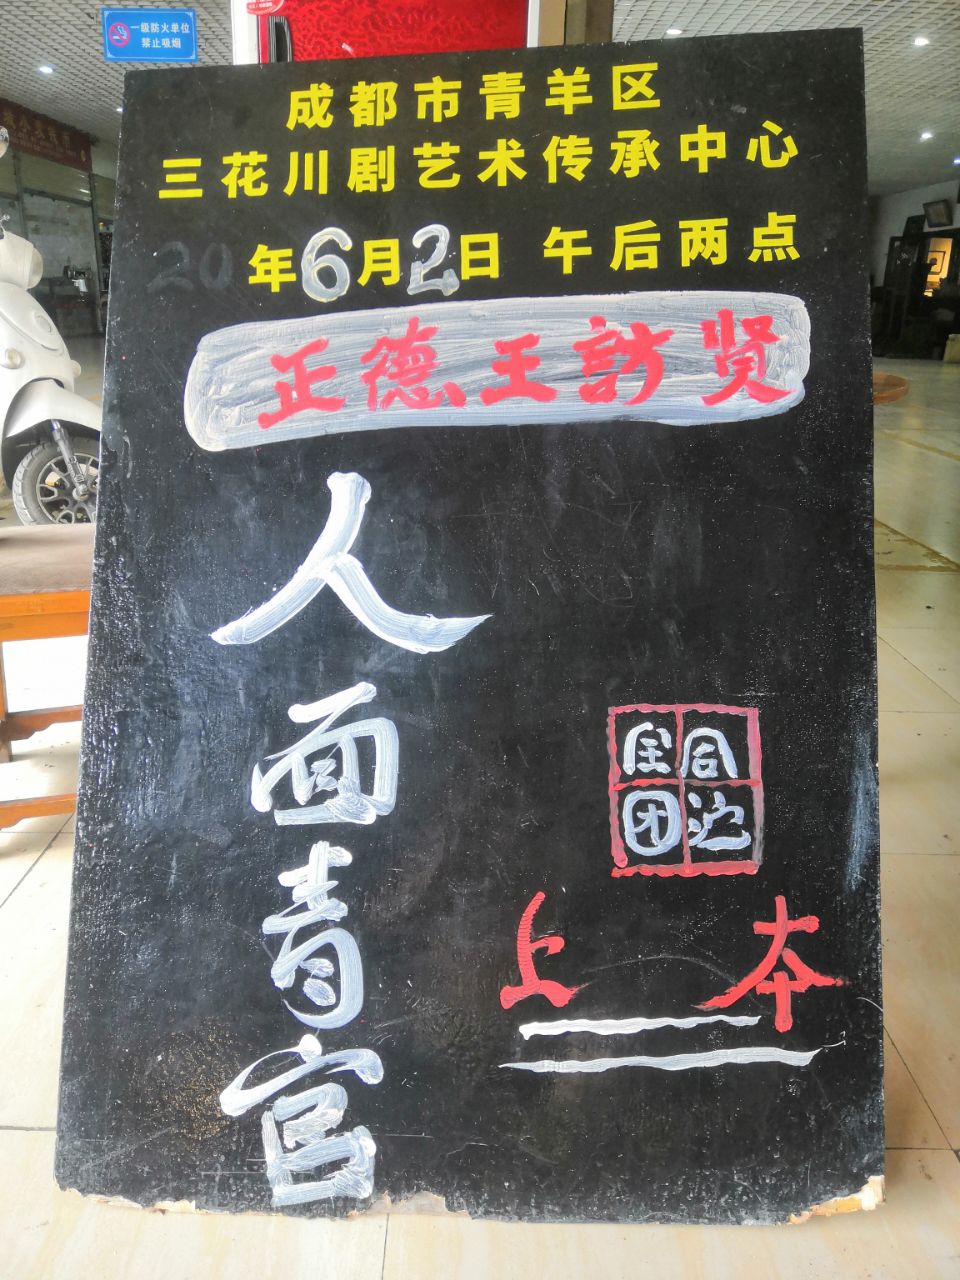 一级防火单位
禁止吸烟
成都市青羊区
三花川剧艺术传承中心
20 年6月2日 午后两点
正德王訪贤
人面青官
全合
团沱
上本